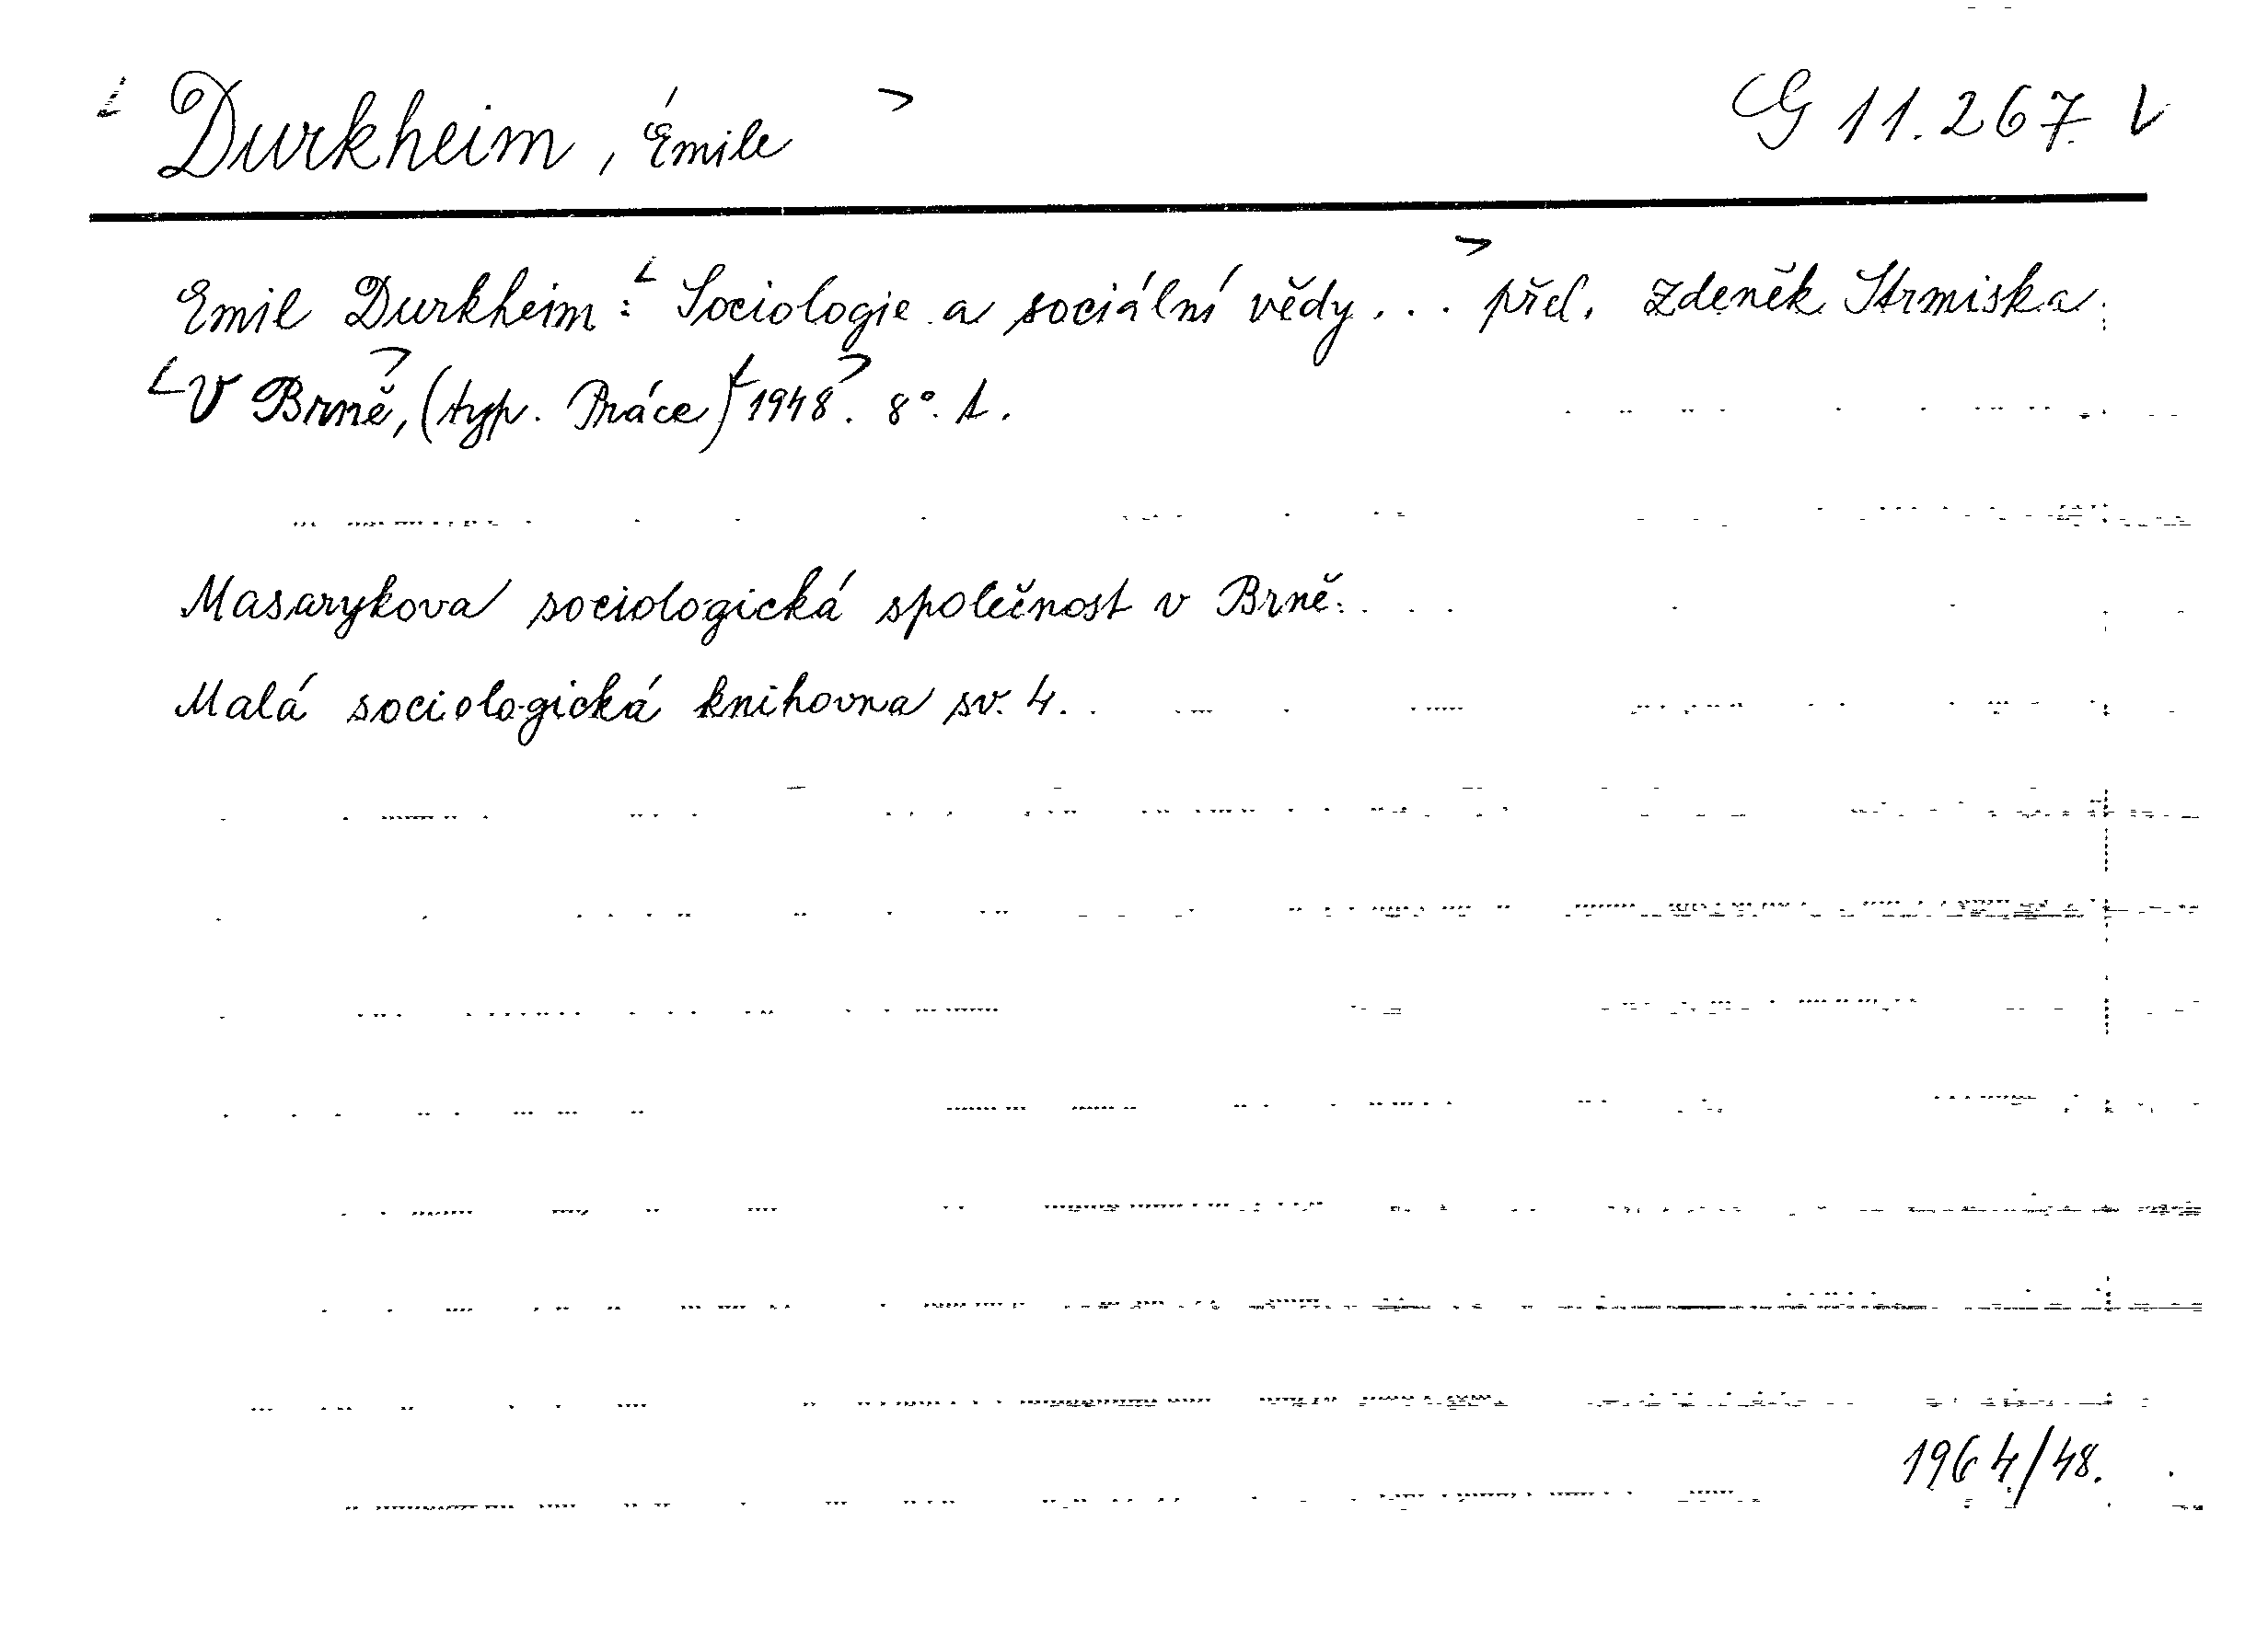 < Durkheim, Émile > G 11.267. V
Emil Durkheim: < Sociologie a sociální vědy... > přel. Zdeněk Strmiska.
< V Brně >, (typ. Práce) < 1948 >. 8°. 1.
Masarykova sociologická společnost v Brně.
Malá sociologická knihovna sv. 4.
1964/48.